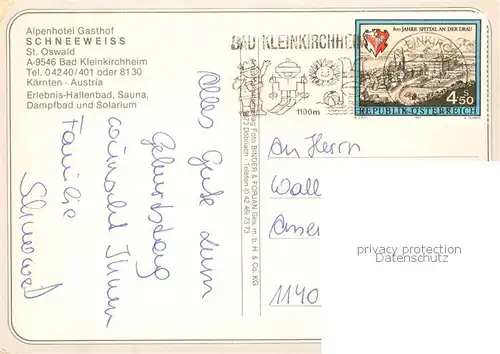 Alpenhotel Gasthof
SCHNEEWEISS
St. Oswald
A-9546 Bad Kleinkirchheim
Tel. 04240/401 oder 8130
Kärnten - Austria
Erlebnis-Hallenbad, Sauna,
Dampfbad und Solarium
Alles Gute zum
Geburtstag
wünscht Ihnen
Familie
BAD KLEINKIRCHHEIM
1100m
800 JAHRE SPITTAL AN DER DRAU
KLEINKIRCH
S
4.50
REPUBLIK ÖSTERREICH
Foto BINDER & FORJAN Ges. m. b. H. & Co. KG
Döbriach - Telefon (0 42 46) 73 73
An Herrn
Wall
1140
privacy protection
Datenschutz